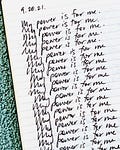 9.28.21.
My power is for me.
My power is for me.
My power is for me.
My power is for me.
My power is for me.
My power is for me.
My power is for me.
My power is for me.
My power is for me.
My power is for me.
My power is for me.
My power is for me.
My power is for me.